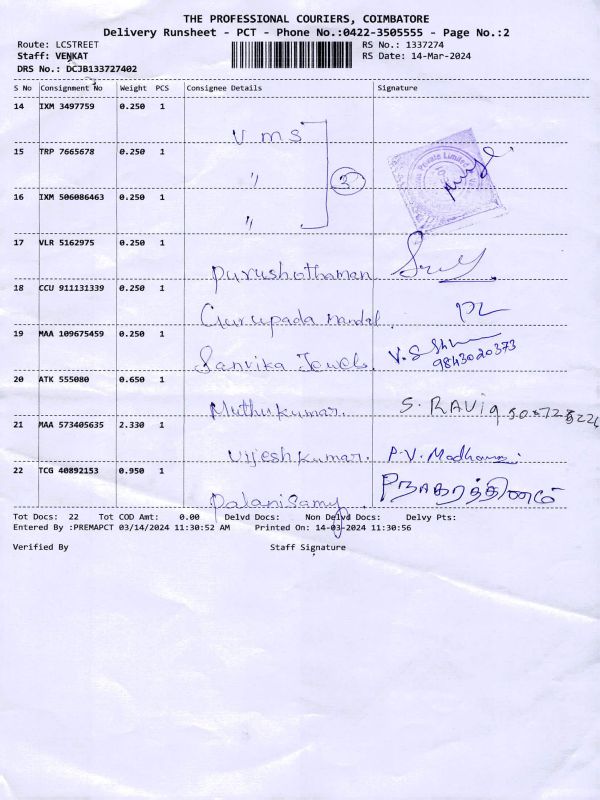 THE PROFESSIONAL COURIERS, COIMBATORE
Delivery Runsheet - PCT - Phone No.:0422-3505555 - Page No.:2
Route: LCSTREET RS No.: 1337274
Staff: VENKAT RS Date: 14-Mar-2024
DRS No.: DCJB133727402
S No Consignment No Weight PCS Consignee Details Signature
14 IXM 3497759 0.250 1 V M S
15 TRP 7665678 0.250 1 " 3 Private Limited
16 IXM 506086463 0.250 1 "
17 VLR 5162975 0.250 1 Purushothaman
18 CCU 911131339 0.250 1 Gurupada Mandal.
19 MAA 109675459 0.250 1 Sanvika Jewels. 9843020373
20 ATK 555080 0.650 1 Muthukumar. S. RAVI
21 MAA 573405635 2.330 1 Vijesh Kumar. P.V.
22 TCG 40892153 0.950 1 Palanisamy
Tot Docs: 22 Tot COD Amt: 0.00 Delvd Docs: Non Delvd Docs: Delvy Pts:
Entered By :PREMAPCT 03/14/2024 11:30:52 AM Printed On: 14-03-2024 11:30:56
Verified By Staff Signature